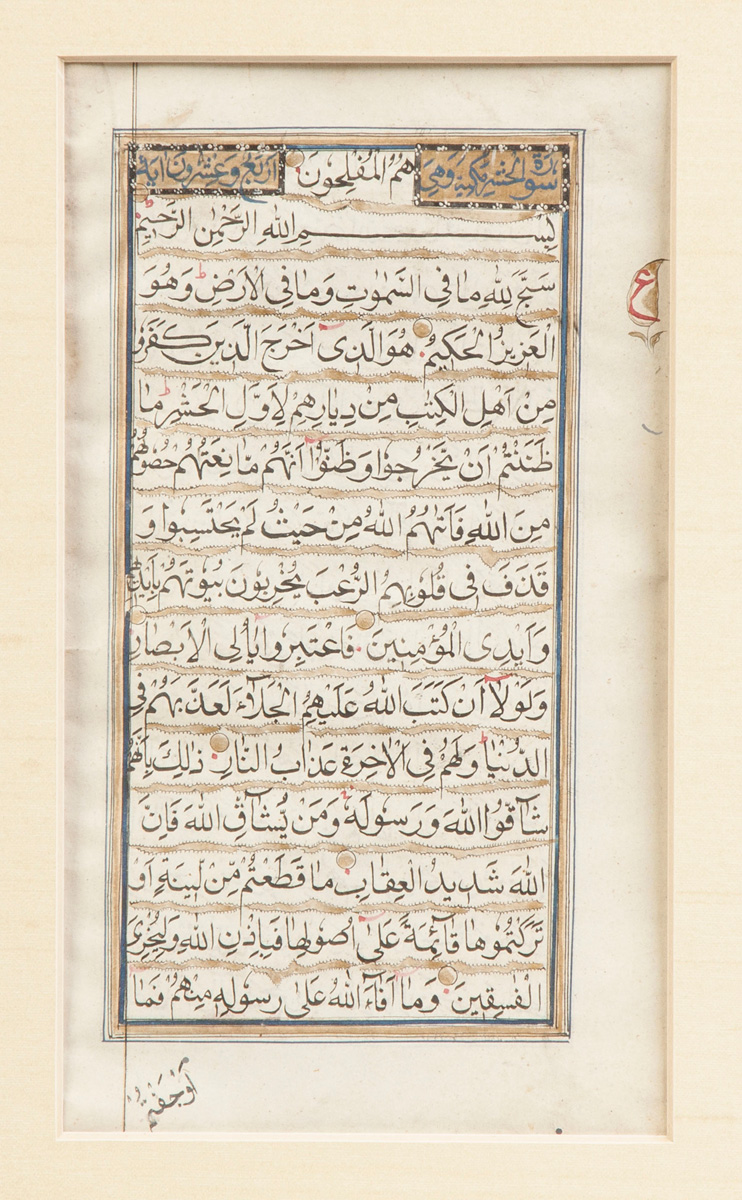 سورة الحشر مكية وهي هُمُ الْمُفْلِحُونَ اربع وعشرون اية
بِسْمِ اللهِ الرَّحْمٰنِ الرَّحِيْمِ
سَبَّحَ لِلّٰهِ مَا فِى السَّمٰوٰتِ وَمَا فِى الْاَرْضِ ط وَهُوَ
الْعَزِيْزُ الْحَكِيْمُ هُوَ الَّذِىْ اَخْرَجَ الَّذِيْنَ كَفَرُوْا
مِنْ اَهْلِ الْكِتٰبِ مِنْ دِيَارِهِمْ لِاَوَّلِ الْحَشْرِ ط مَا
ظَنَنْتُمْ اَنْ يَّخْرُجُوْا وَظَنُّوْا اَنَّهُمْ مَّانِعَتُهُمْ حُصُوْنُهُمْ
مِنَ اللهِ فَاَتٰىهُمُ اللهُ مِنْ حَيْثُ لَمْ يَحْتَسِبُوْا وَ
قَذَفَ فِىْ قُلُوْبِهِمُ الرُّعْبَ يُخْرِبُوْنَ بُيُوْتَهُمْ بِاَيْدِيْهِمْ
وَاَيْدِى الْمُؤْمِنِيْنَ فَاعْتَبِرُوْا يٰاُولِى الْاَبْصَارِ
وَلَوْلَا اَنْ كَتَبَ اللهُ عَلَيْهِمُ الْجَلَاءَ لَعَذَّبَهُمْ فِى
الدُّنْيَا ط وَلَهُمْ فِى الْاٰخِرَةِ عَذَابُ النَّارِ ذٰلِكَ بِاَنَّهُمْ
شَاقُّوا اللهَ وَرَسُوْلَهٗ وَمَنْ يُّشَاقِّ اللهَ فَاِنَّ
اللهَ شَدِيْدُ الْعِقَابِ مَا قَطَعْتُمْ مِّنْ لِّيْنَةٍ اَوْ
تَرَكْتُمُوْهَا قَائِمَةً عَلٰى اُصُوْلِهَا فَبِاِذْنِ اللهِ وَلِيُخْزِىَ
الْفٰسِقِيْنَ وَمَا اَفَاءَ اللهُ عَلٰى رَسُوْلِهٖ مِنْهُمْ فَمَا
اَوْجَفْتُمْ
ع